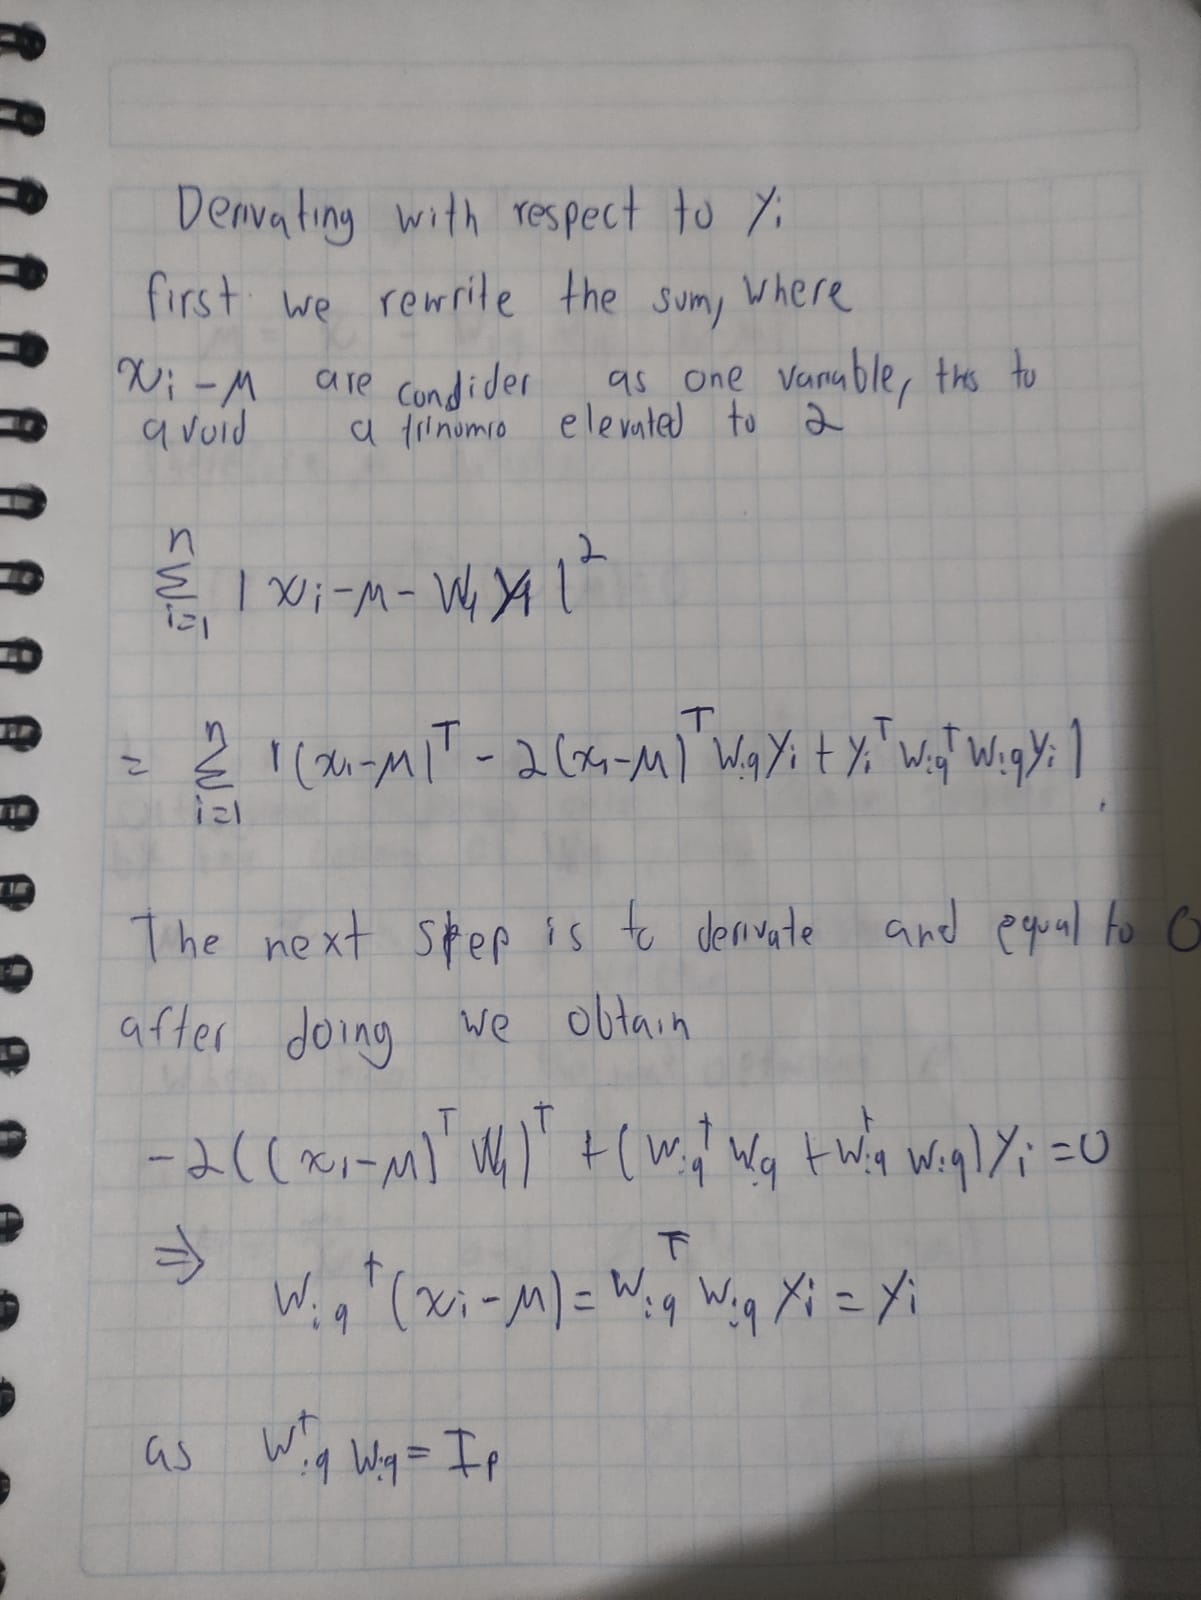 Derivating with respect to Yi
first we rewrite the sum, where
xi - μ are condider as one variable, this to
avoid a trinomio elevated to 2
n
Σ | xi - μ - Wq |²
i=1
= Σ |(xi-μ)ᵀ - 2(xi-μ)ᵀ W:q Yi + Yiᵀ W:qᵀ W:q Yi|
n
i=1
The next step is to derivate and equal to 0
after doing we obtain
-2((xi-μ)ᵀ Wq)ᵀ + (W:qᵀ W:q + W:qᵀ W:q) Yi = 0
⇒ W:qᵀ (xi - μ) = W:qᵀ W:q Yi = Yi
as W:qᵀ W:q = Ip